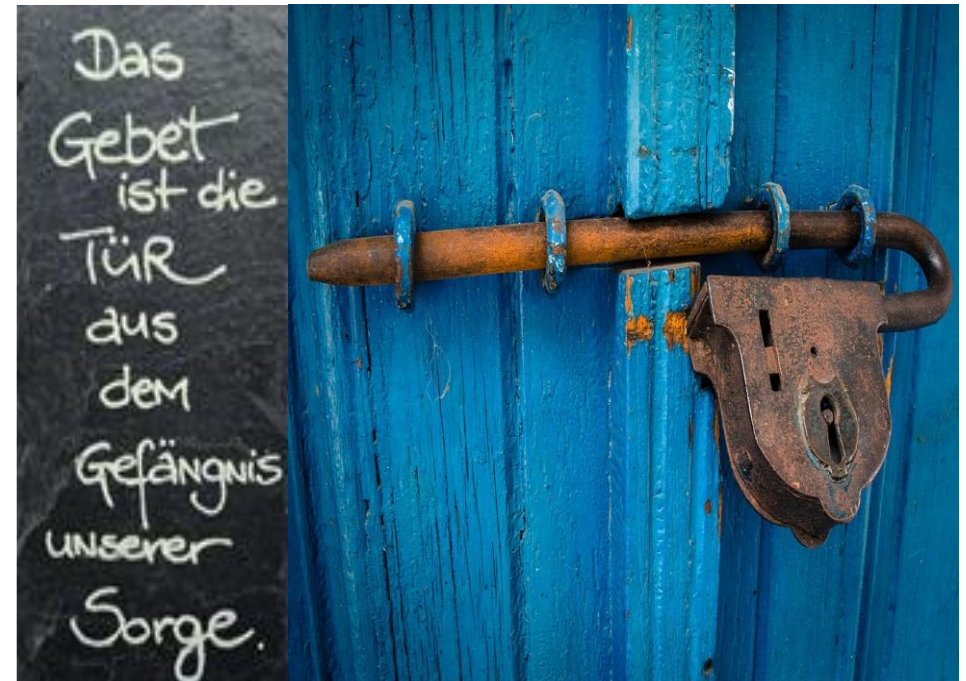 Das
Gebet
ist die
TüR
aus
dem
Gefängnis
unserer
Sorge.